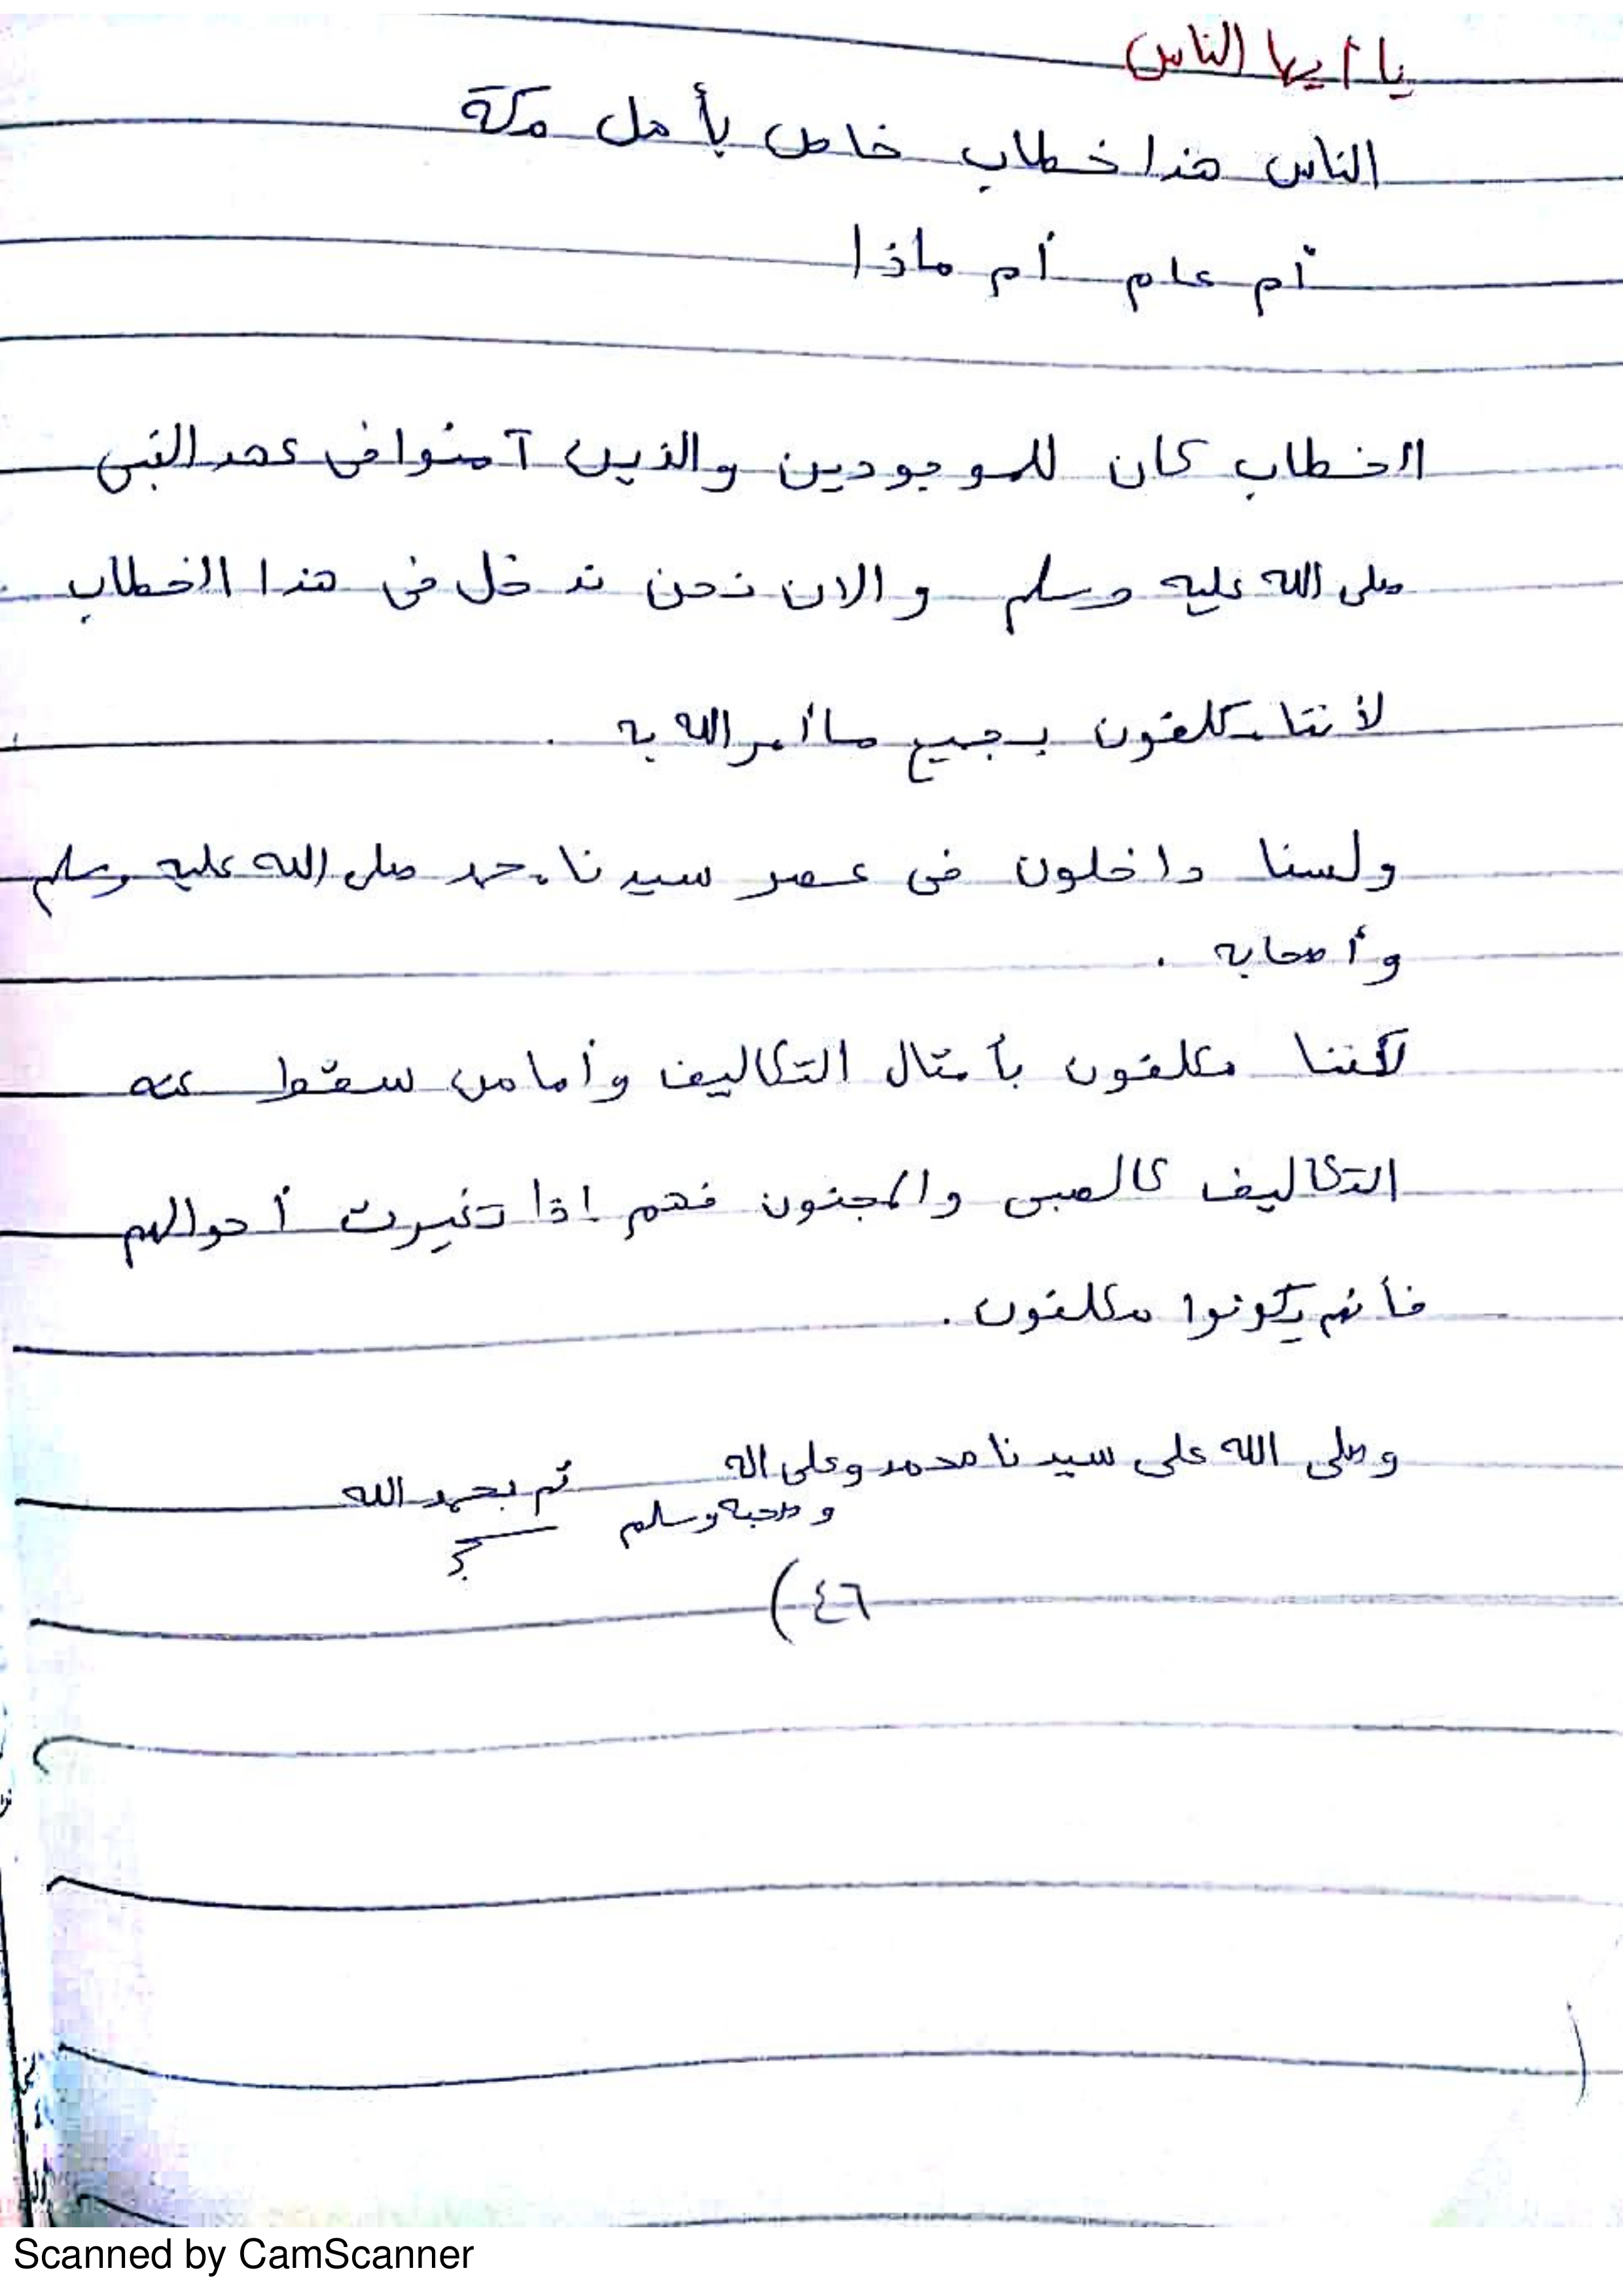 يا أيها الناس
الناس هذا خطاب خاص بأهل مكة
أم عام أم ماذا
الخطاب كان للموجودين والذين آمنوا فى عهد النبى
صلى الله عليه وسلم والان نحن ندخل فى هذا الخطاب
لأننا مكلفون بجميع ما أمر الله به .
ولسنا داخلون فى عصر سيدنا محمد صلى الله عليه وسلم
وأصحابه .
لكننا مكلفون بأمثال التكاليف وأما من سقط عنه
التكاليف كالصبى والمجنون فهم إذا تغيرت أحوالهم
فأنهم يكونوا مكلفون .
وصلى الله على سيدنا محمد وعلى اله
وصحبه وسلم
تم بحمد الله
٤٦)
Scanned by CamScanner